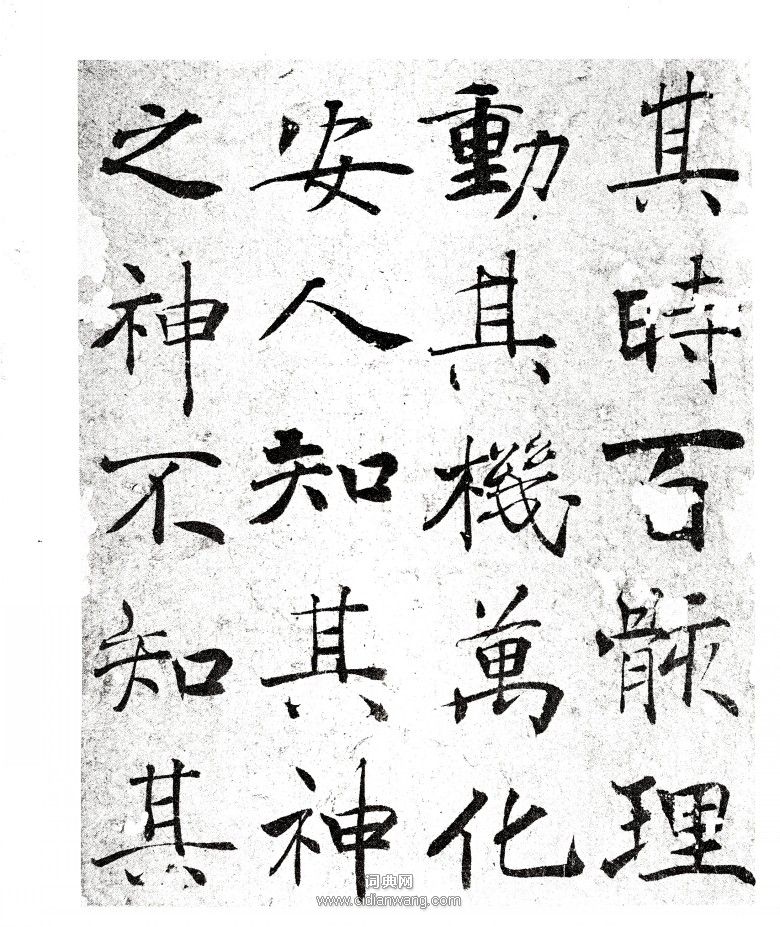 其時百骸理
動其機萬化
安人知其神
之神不知其
词典网
www.cidianwang.com